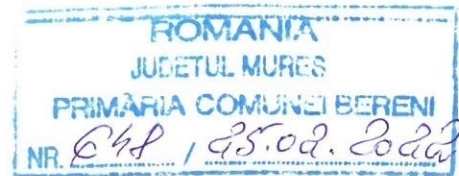 ROMANIA
JUDETUL MURES
PRIMĂRIA COMUNEI BERENI
NR. 648 / 25.02.2022